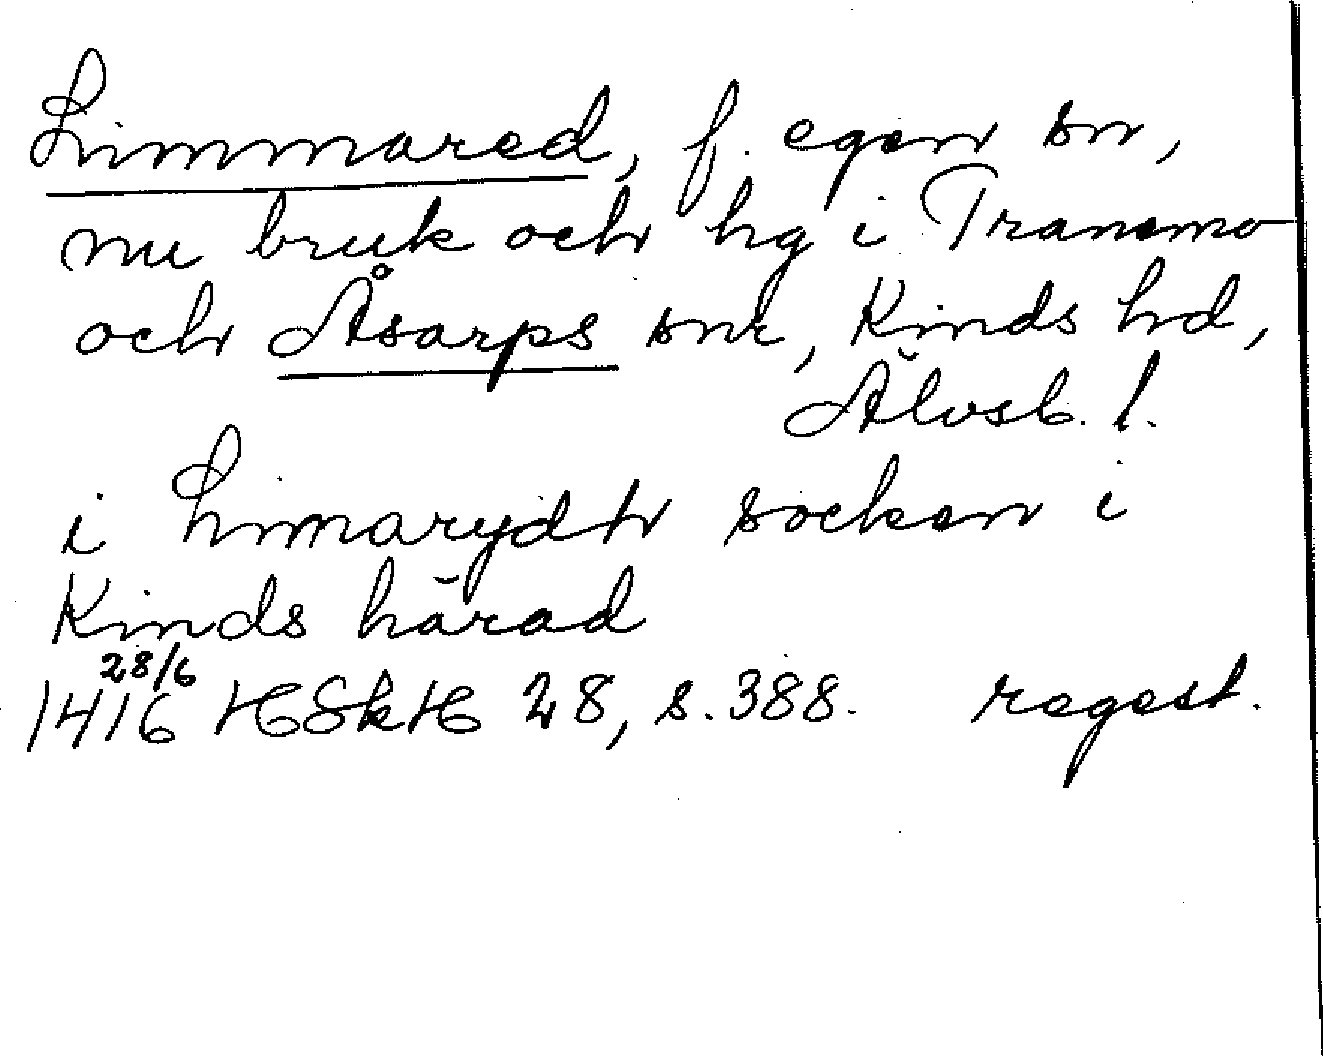 Limmared, f. egen sn,
nu bruk och hg i Tranemo
och Åsarps snr, Kinds hd,
Älvsb. l.
i Limarydh socken i
Kinds härad
28/6
1416 HSkH 28, s. 388. regest.